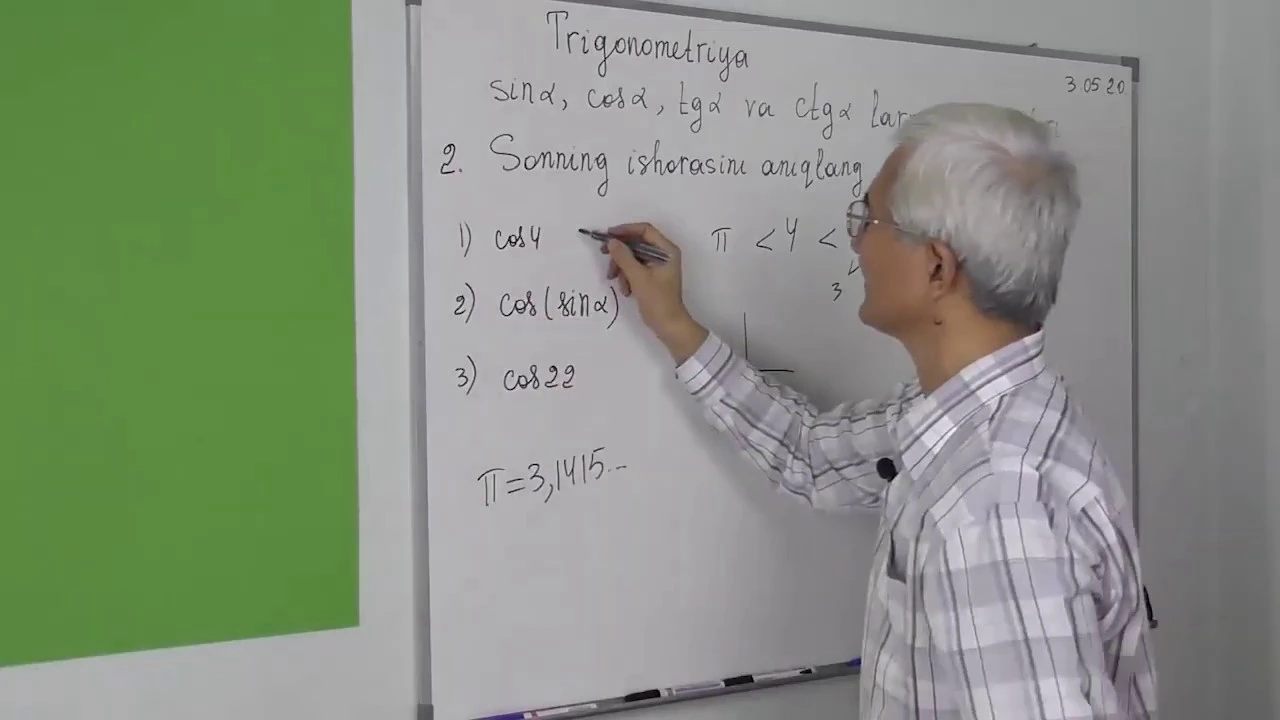 Trigonometriya
3.05.20.
sinα, cosα, tgα va ctgα
2. Sonning ishorasini aniqlang
1) cos4
π < 4 <
3
2) cos(sinα)
3) cos22
π=3,1415...